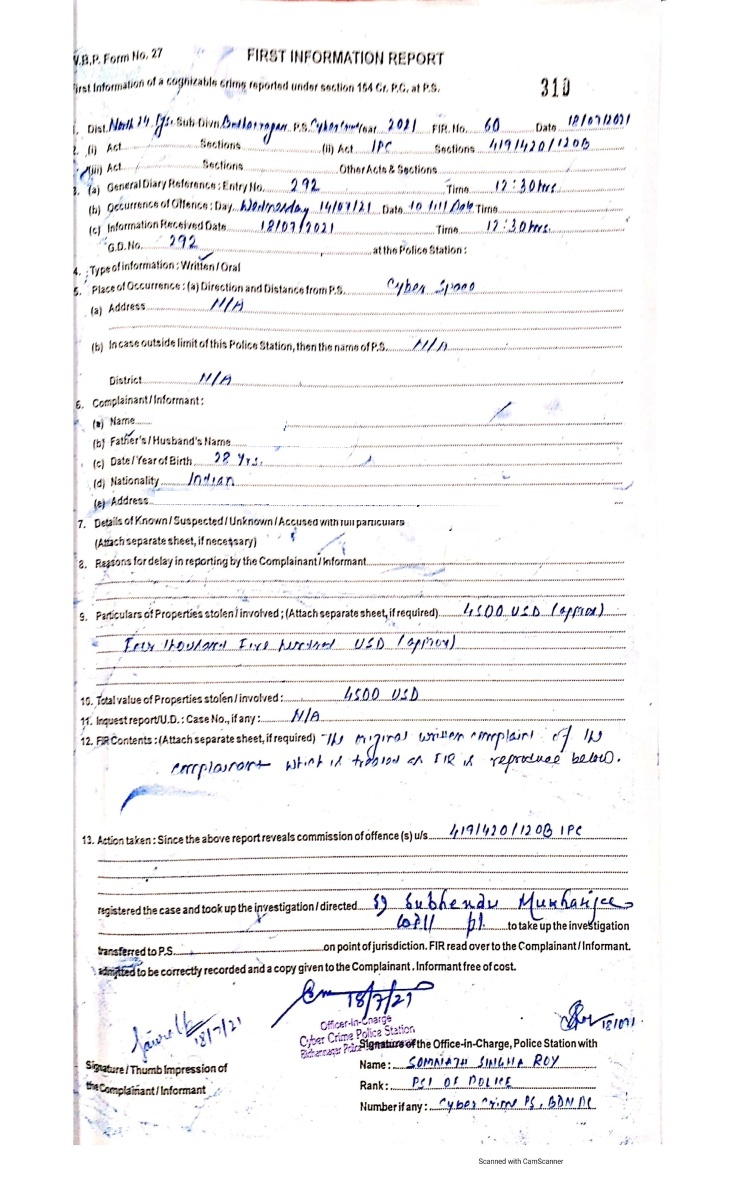 W.B.P. Form No. 27 FIRST INFORMATION REPORT
First Information of a cognizable crime reported under section 154 Cr. P.C. at P.S. 310
1. Dist. North 24 Pgs. Sub-Divn. Bidhannagar P.S. Cyber Crime Year 2021 FIR. No. 60 Date 18/07/2021
2. (i) Act Sections (ii) Act IPC Sections 419/420/120B
(iii) Act Sections Other Acts & Sections
3. (a) General Diary Reference : Entry No. 292 Time 12:30 hrs
(b) Occurrence of Offence : Day Wednesday 14/07/21 Date to till date Time
(c) Information Received Date 18/07/2021 Time 12:30 hrs.
G.D. No. 292 at the Police Station :
4. Type of information : Written / Oral
5. Place of Occurrence : (a) Direction and Distance from P.S. Cyber Space
(a) Address N/A
(b) In case outside limit of this Police Station, then the name of P.S. N/A
District N/A
6. Complainant / Informant :
(a) Name
(b) Father's / Husband's Name
(c) Date / Year of Birth 28 Yrs.
(d) Nationality Indian
(e) Address
7. Details of Known / Suspected / Unknown / Accused with full particulars
(Attach separate sheet, if necessary)
8. Reasons for delay in reporting by the Complainant / Informant
9. Particulars of Properties stolen / involved ; (Attach separate sheet, if required) 4500 USD (approx)
Four thousand Five hundred USD (approx)
10. Total value of Properties stolen / involved : 4500 USD
11. Inquest report/U.D. : Case No., if any : N/A
12. FIR Contents : (Attach separate sheet, if required) The original written complaint of the
complainant which is treated as FIR is reproduce below.
13. Action taken : Since the above report reveals commission of offence (s) u/s 419/420/120B IPC
registered the case and took up the investigation / directed SI Subhendu Mukharjee
to take up the investigation
transferred to P.S. on point of jurisdiction. FIR read over to the Complainant / Informant.
admitted to be correctly recorded and a copy given to the Complainant . Informant free of cost.
18/7/21
18/7/21
Officer-in-Charge
Cyber Crime Police Station
Signature of the Office-in-Charge, Police Station with
Signature / Thumb Impression of
the Complainant / Informant
Name : SOMNATH SINGHA ROY
Rank : PSI OF POLICE
Number if any : Cyber Crime PS, BDN PC
Scanned with CamScanner